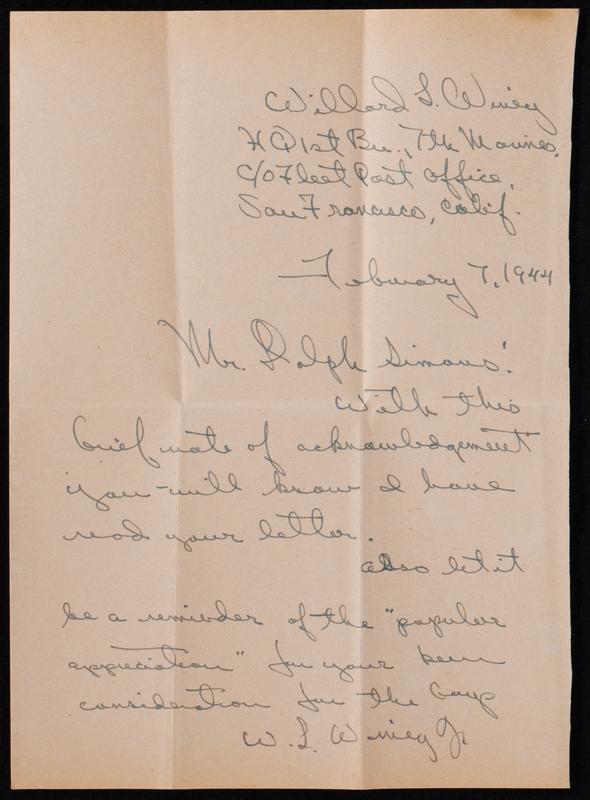 Willard S. Winey
HQ 1st Bn., 7th Marines,
C/O Fleet Post Office,
San Francisco, Calif.
February 7, 1944
Mr. Ralph Simons:
With this
brief note of acknowledgement
you will know I have
read your letter.
also let it
be a reminder of the "popular
appreciation" for your keen
consideration for the
W. S. Winey Jr.